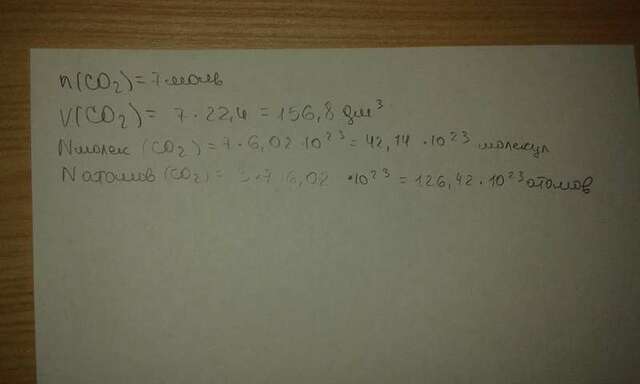 n(CO₂) = 7 моль
V(CO₂) = 7 · 22,4 = 156,8 дм³
Nмолек (CO₂) = 7 · 6,02 · 10²³ = 42,14 · 10²³ молекул
Nатомов (CO₂) = 3 · 7 · 6,02 · 10²³ = 126,42 · 10²³ атомов